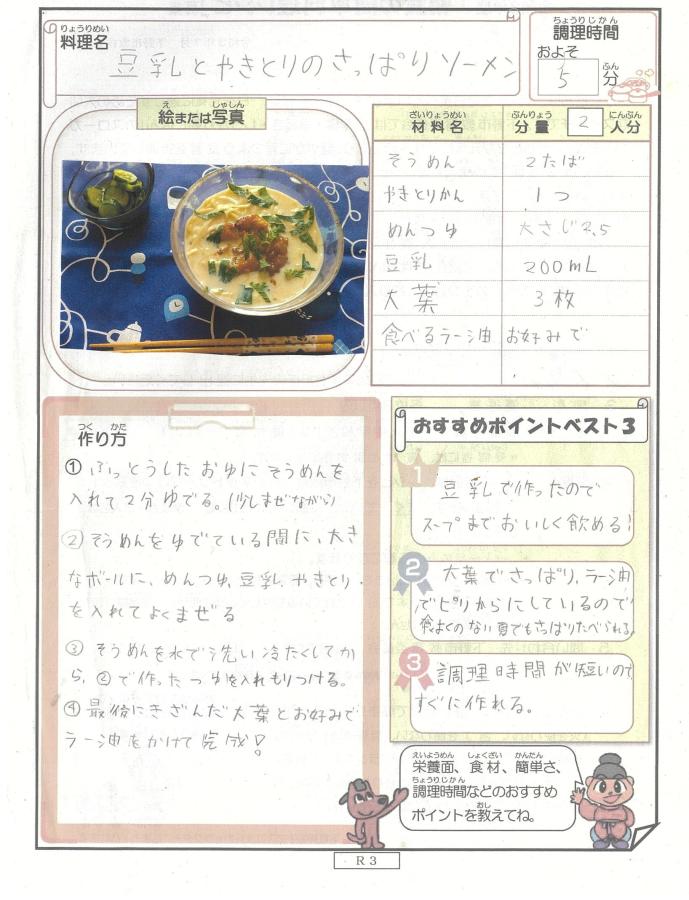 りょうりめい
料理名
豆乳とやきとりのさっぱりソーメン
ちょうりじかん
調理時間
およそ
5 分
ふん
え しゃしん
絵または写真
ざいりょうめい ぶんりょう にんぶん
材料名 分量 2 人分
そうめん 2たば
やきとりかん 1つ
めんつゆ 大さじ2.5
豆乳 200mL
大葉 3枚
食べるラー油 お好みで
つく かた
作り方
① ふっとうしたおゆにそうめんを
入れて2分ゆでる。(少しまぜながら)
② そうめんをゆでている間に、大き
なボールに、めんつゆ、豆乳、やきとり
を入れてよくまぜる
③ そうめんを水で洗い冷たくしてか
ら、②で作ったつゆを入れもりつける。
④ 最後にきざんだ大葉とお好みで
ラー油をかけて完成!
おすすめポイントベスト3
1
豆乳で作ったので
スープまでおいしく飲める!
2
大葉でさっぱり、ラー油
でピリからにしているので
食よくのない夏でもさっぱりたべられる。
3
調理時間が短いので
すぐに作れる。
えいようめん しょくざい かんたん
栄養面、食材、簡単さ、
ちょうりじかん
調理時間などのおすすめ
おし
ポイントを教えてね。
R3